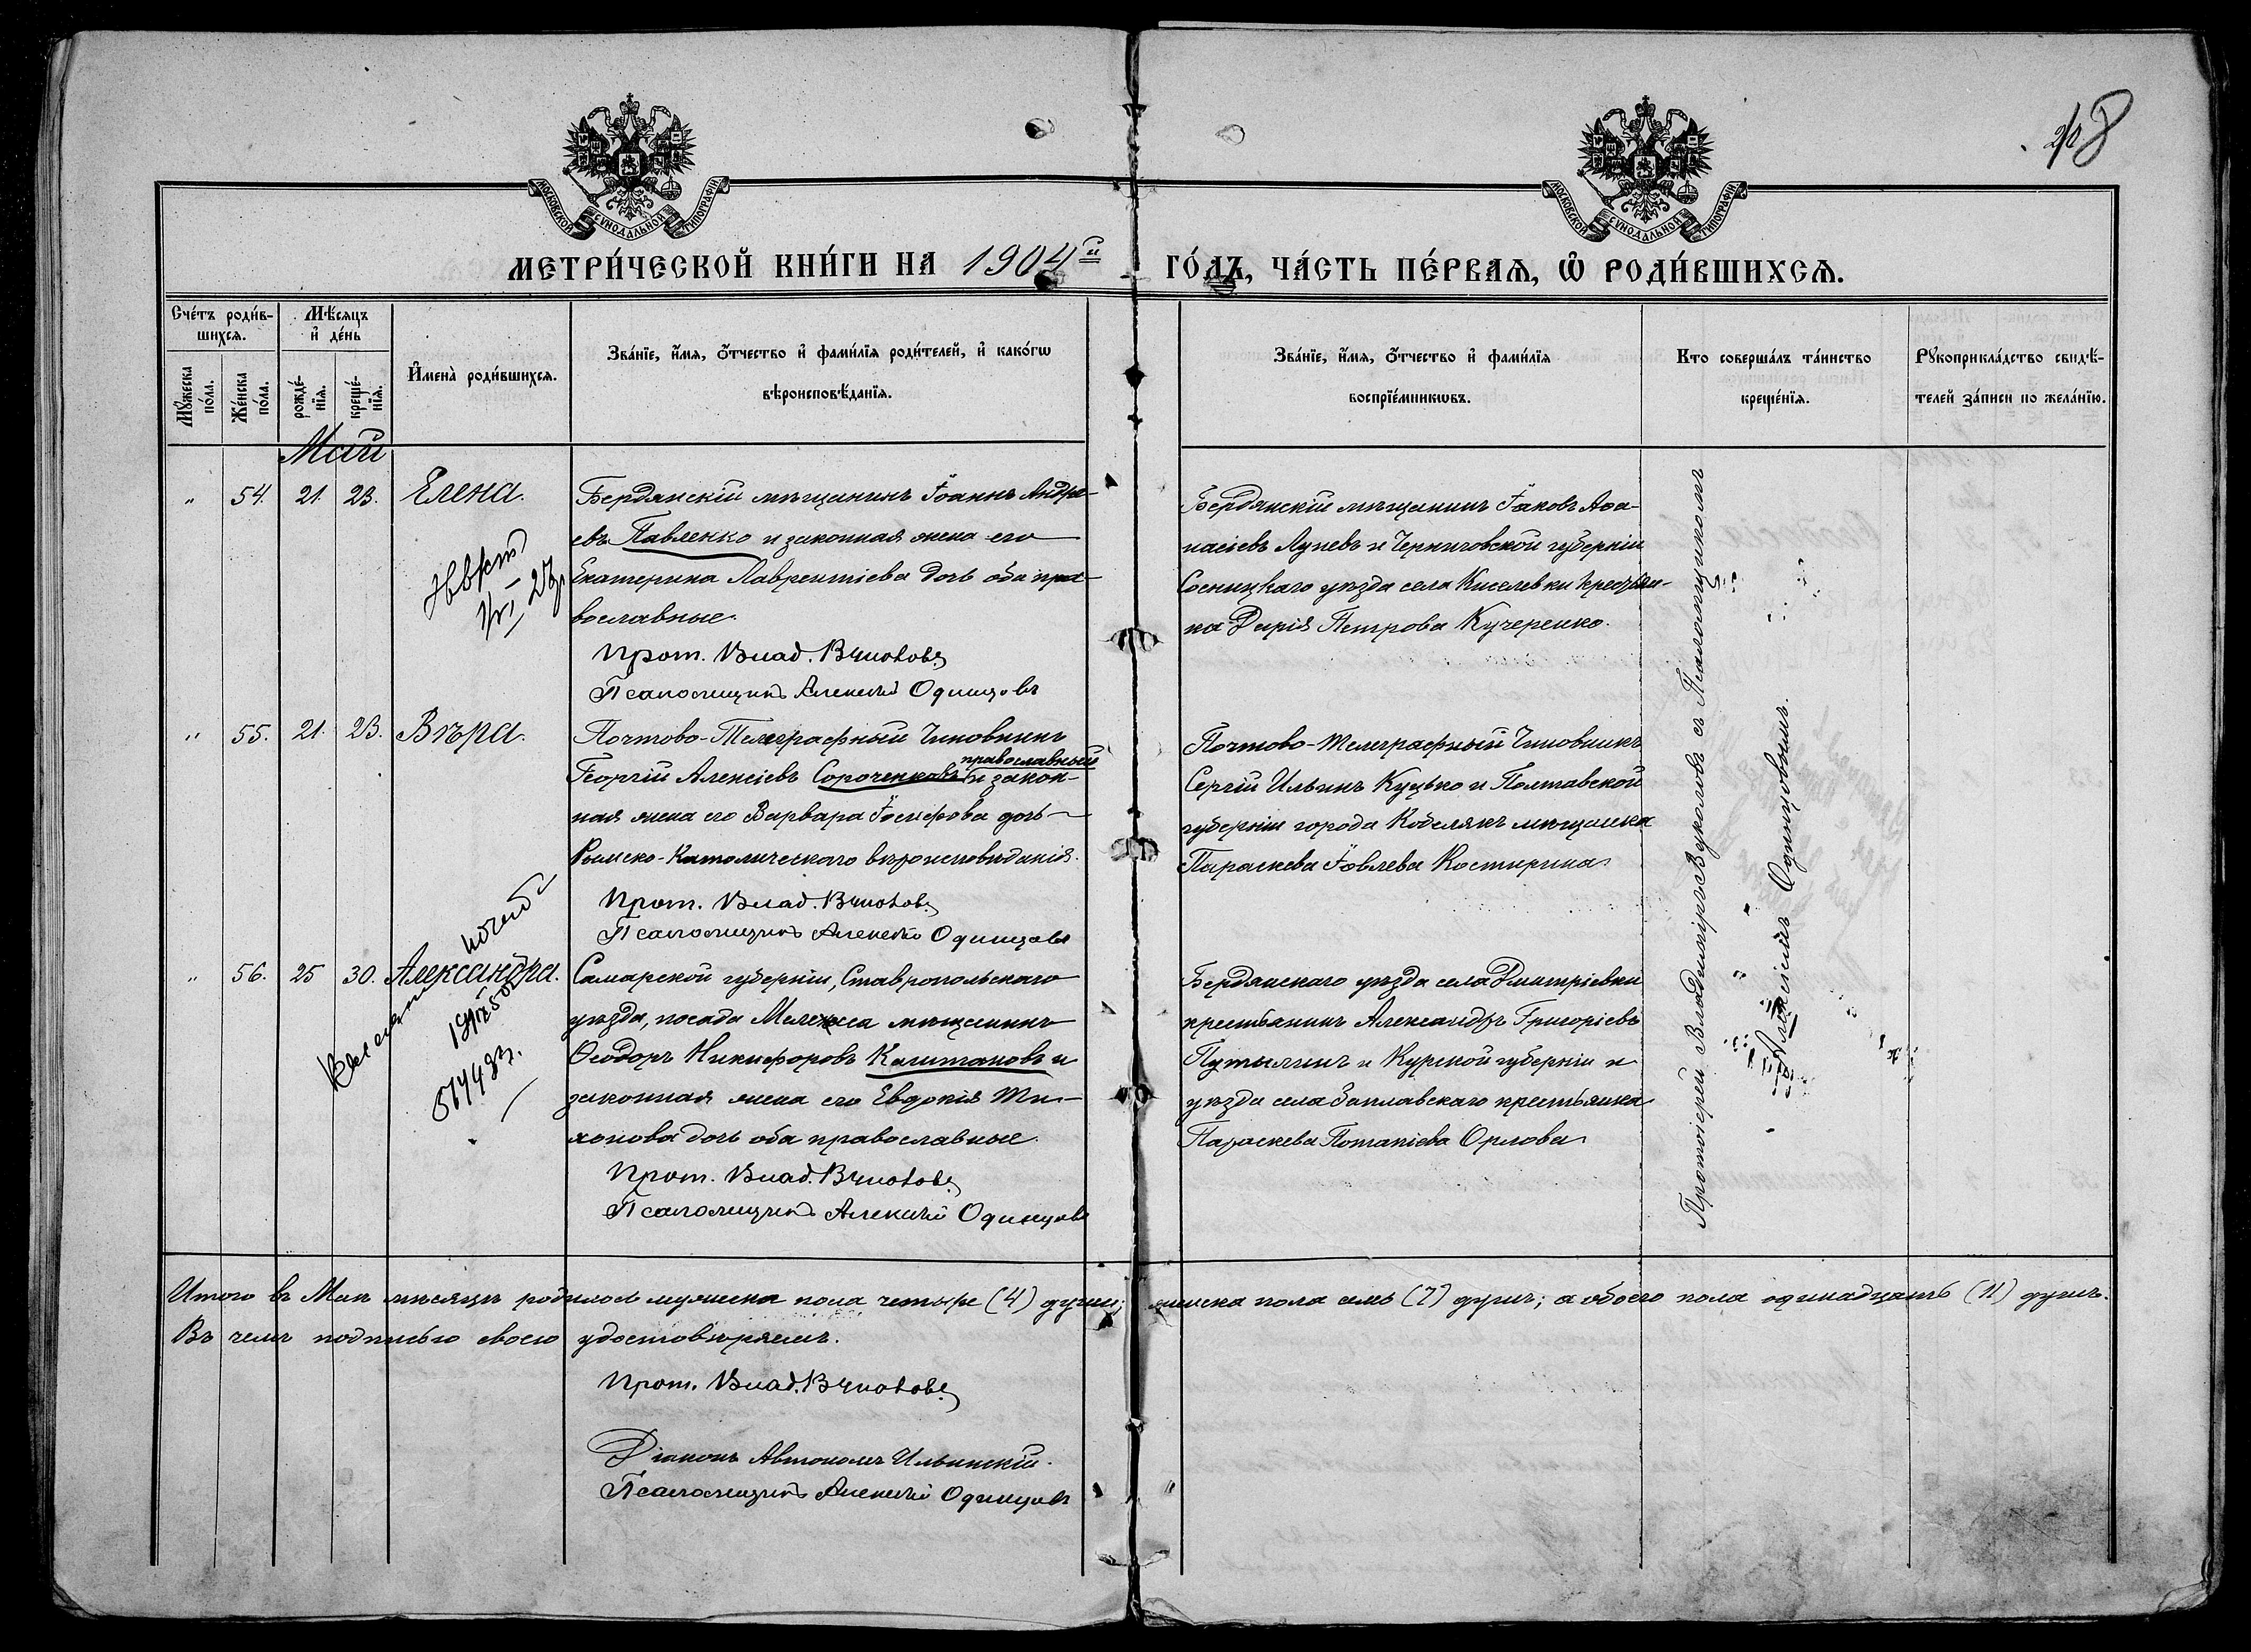 28
МОСКОВСКОЙ СѴНОДАЛЬНОЙ ТИПОГРАФІИ
МОСКОВСКОЙ СѴНОДАЛЬНОЙ ТИПОГРАФІИ
МЕТРИ́ЧЕСКОЙ КНИ́ГИ НА 1904й ГО́ДЪ, ЧА́СТЬ ПЕ́РВАѦ, Ѡ РОДИ́ВШИХСѦ.
Сче́тъ роди́в-
шихсѧ.
Мꙋ́жеска по́ла.
Же́нска по́ла.
Мѣ́сяцъ
и де́нь
рожде́-
нїѧ.
креще́-
нїѧ.
Имена̀ роди́вшихсѧ.
Зва́нїе, и́мѧ, ѻ҆́тчество и҆ фами́лїѧ роди́телей, и҆ како́гѡ
вѣроисповѣ́данїѧ.
Зва́нїе, и́мѧ, ѻ҆́тчество и҆ фами́лїѧ
воспрїе́мникѡвъ.
Кто соверша́лъ та́инство
креще́нїѧ.
Рꙋкоприкла́дство свидѣ́-
телей за́писи по жела́нїю.
Май
" 54. 21. 23. Елена.
Бердянскій мѣщанинъ Іоаннъ Андре-
евъ Павленко и законная жена его
Екатерина Лаврентіева дочь оба пра-
вославные.
Прот. Влад. Вуколовъ
Псаломщикъ Алексѣй Одинцовъ
Бердянскій мѣщанинъ Іаковъ Аѳа-
насіевъ Луневъ и Черниговской губерніи
Сосницкаго уѣзда села Киселевки крестьян-
ка Дарія Петрова Кучеренко.
" 55. 21. 23. Вѣра.
Почтово-Телеграфный Чиновникъ
православный
Георгій Алексіевъ Сороченковъ и закон-
ная жена его Варвара Іосифова дочь
Римско-Католическаго вѣроисповѣданія.
Прот. Влад. Вуколовъ
Псаломщикъ Алексѣй Одинцовъ
Почтово-телеграфный Чиновникъ
Сергій Ильинъ Куцько и Полтавской
губерніи города Кобелякъ мѣщанка
Параскева Іовлева Костирина.
" 56. 25 30. Александра.
Самарской губерніи, Ставропольскаго
уѣзда, посада Мелекеса мѣщанинъ
Ѳеодоръ Никифоровъ Каштановъ и
законная жена его Евдокія Ти-
хонова дочь оба православные.
Прот. Влад. Вуколовъ
Псаломщикъ Алексѣй Одинцовъ
Бердянскаго уѣзда села Дмитріевки
крестьянинъ Александръ Григоріевъ
Путылинъ и Курской губерніи и
уѣзда села Заплавскаго крестьянка
Параскева Потапіева Орлова.
Протоіерей Владиміръ Вуколовъ съ Псаломщикомъ
Алексіемъ Одинцовымъ.
Итого въ Маѣ мѣсяцѣ родилось мужеска пола четыре (4) души; женска пола семь (7) душъ; а обоего пола одинадцать (11) душъ.
Въ чемъ подписью своею удостовѣряемъ.
Прот. Влад. Вуколовъ
Діаконъ Автономъ Ильинскій.
Псаломщикъ Алексѣй Одинцовъ